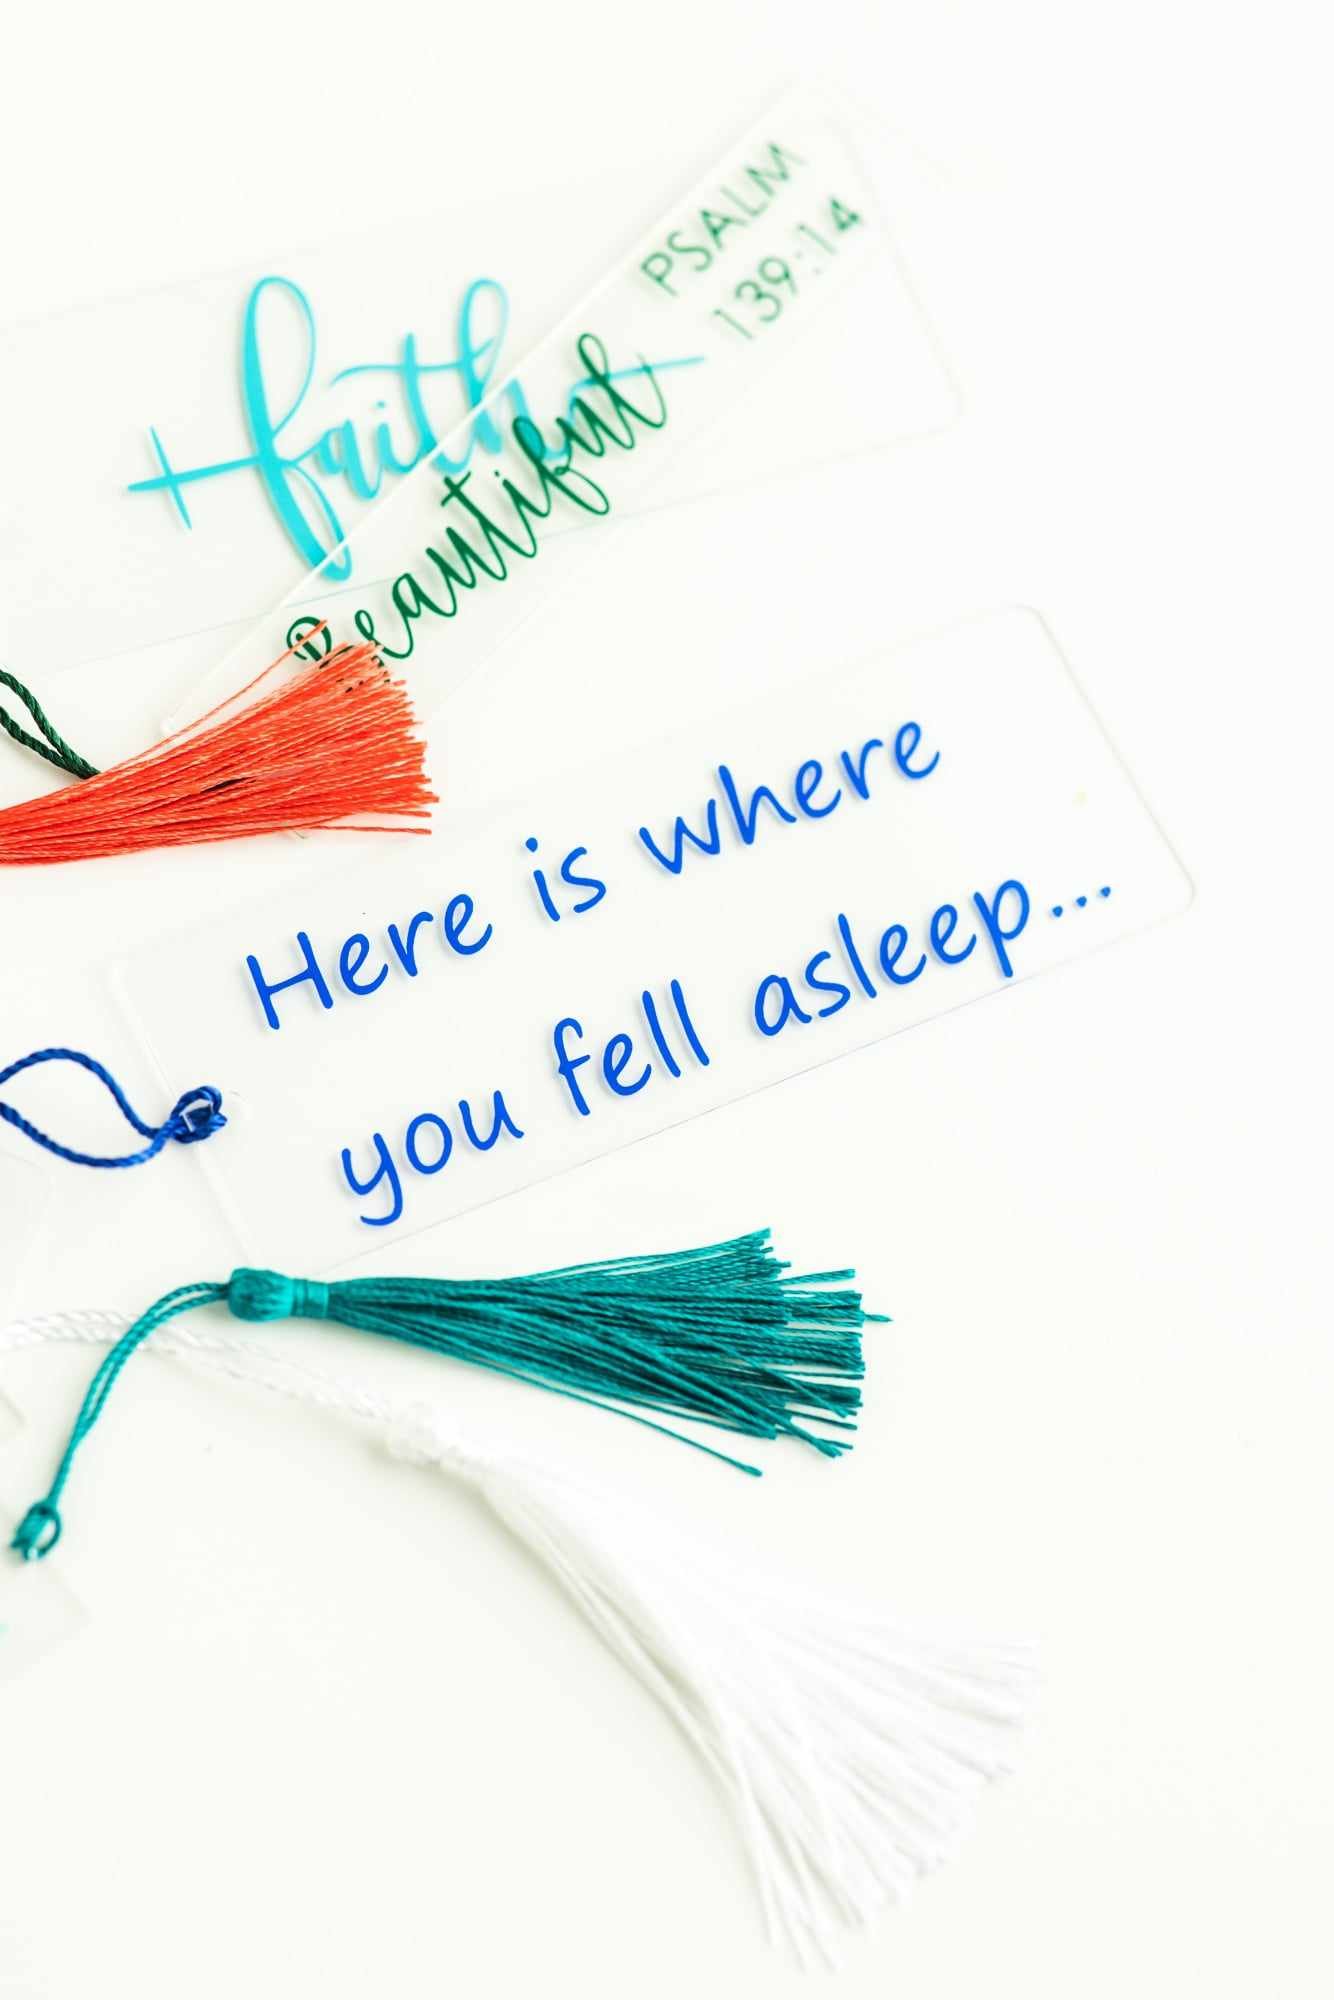 faith
Beautiful
PSALM
139:14
Here is where
you fell asleep...